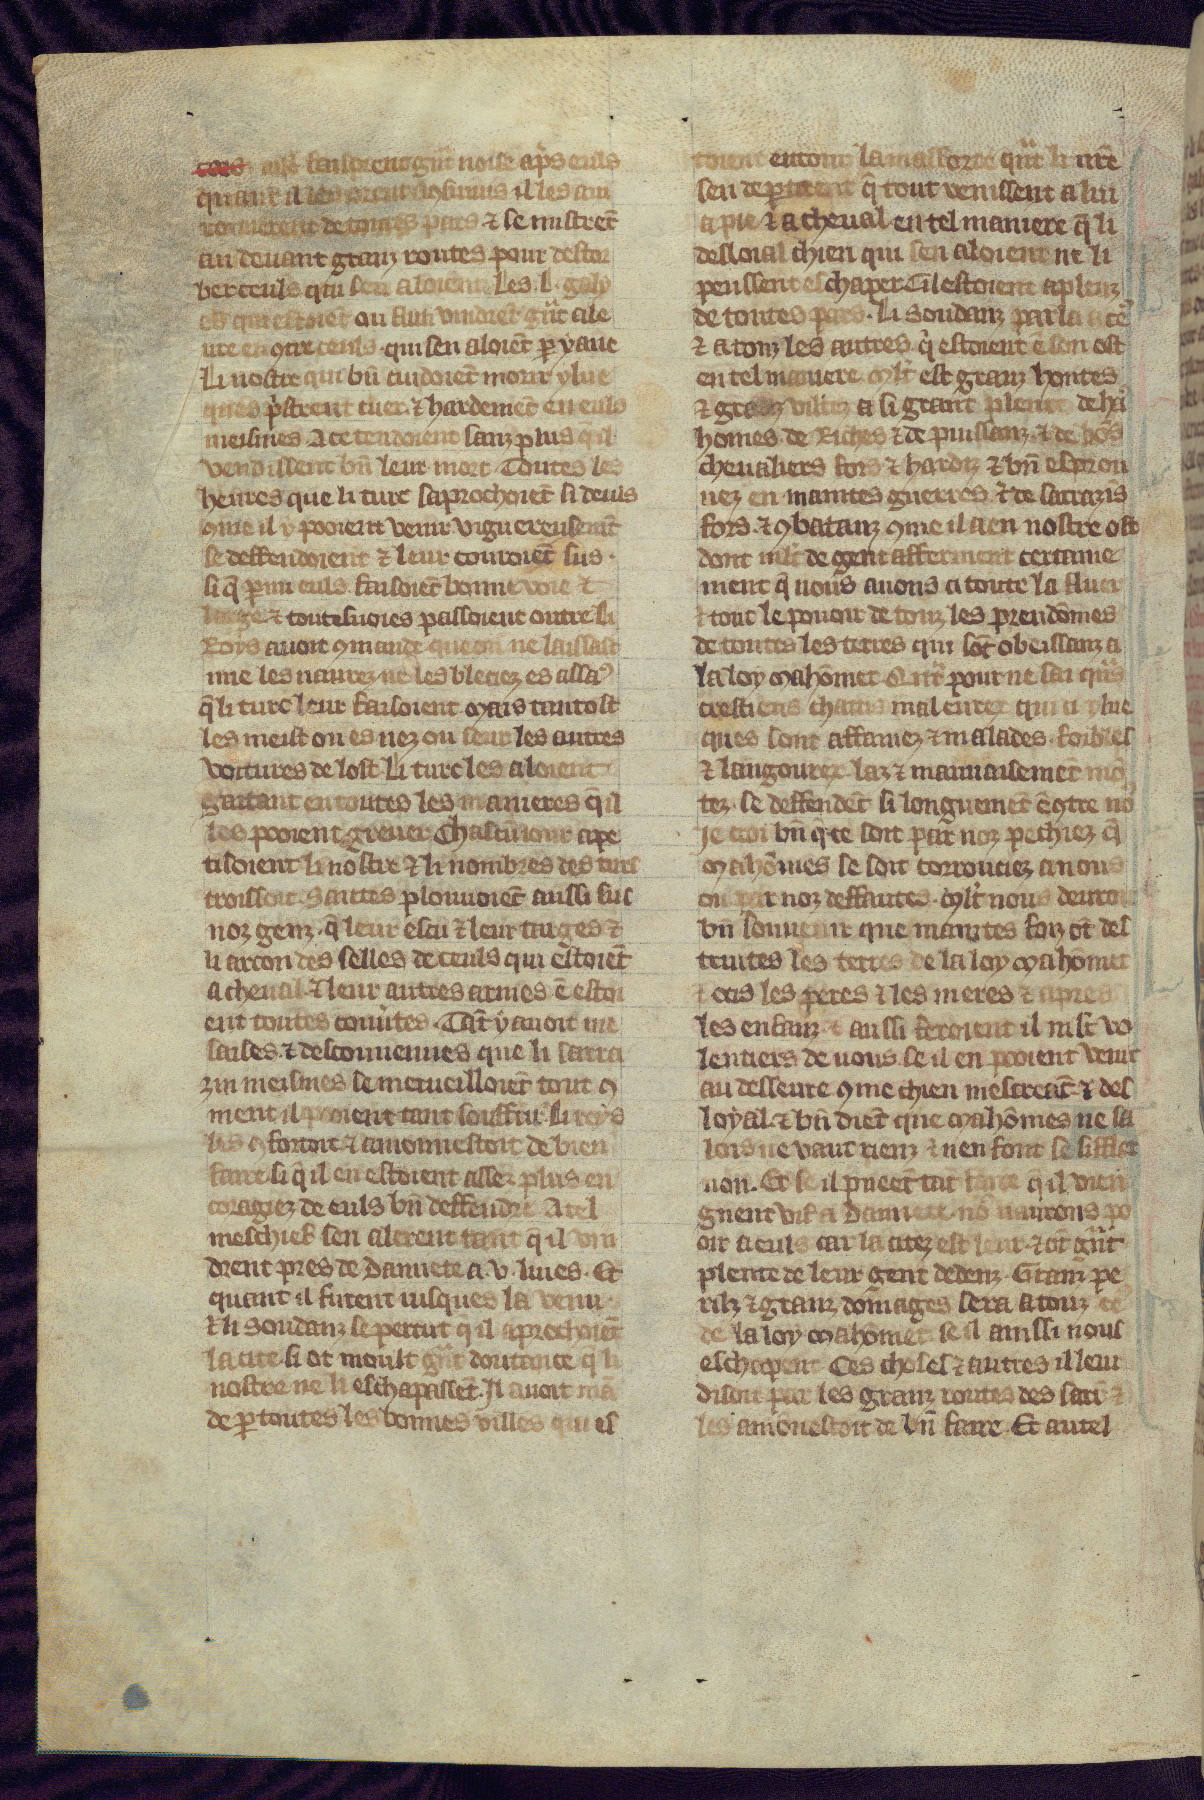 quant il les orent aconseus il les avi
ronnerent de toutes pars ⁊ se mistrent̄
au devant granz routes pour destor
ber ceuls qui sen aloient. Les .L. galy
es qui estoiēt ou flun vindrēt gūt ale
ure enꝯtre ceuls qui sen aloiēt ꝑ yaue
Li nostre qui bn̄ cuidoiēt morir ylue
ques pristrent cuer ⁊ hardemēt en euls
meismes. A ce tendoient sanz plus q̄ il
vendissent bn̄ leur mort. Toutes les
heures que li turc saprochoiēt si deuls
ꝯme il y pooient venir viguereusemēt
se deffendoient ⁊ leur couroiēt sus.
si q̄ ꝑmi euls faisoiēt bonne voie ⁊
large ⁊ toutesuoies passoient outre Li
Roys avoit ꝯmande que on ne laissast
mie les navrez ne les bleciez es assaꝰ
q̄ li turc leur faisoient Mais tantost
les meist on es nez ou seur les autres
voitures de lost Li turc les aloient
gaitant en toutes les manieres q̄ il
les pooient grever Chascun iour ape
tisoient li nostre ⁊ li nombres des turs
croissoit. Saietes plouvoiēt aussi sus
noz genz. q̄ leur escu ⁊ leur targes ⁊
li arcon des selles de ceuls qui estoiēt
a cheval ⁊ leur autres armes ē estoi
ent toutes couūtes. Tāt y avoit me
saises ⁊ desconvenues que li sarra
zin meismes se merveilloiēt tout ꝯ
ment il pooient tant souffrir. Li roys
les ꝯfortoit ⁊ amonnestoit de bien
faire si q̄ il en estoient assez plus en
coragiez de euls bn̄ deffendre A tel
meschief sen alerent tant q̄ il vin
drent pres de Damiete a .v. liues. Et
quant il furent iusques la venu
⁊ li Soudanz se percut q̄ il aprochoiēt
la cite si ot moult gūt doutance q̄ li
nostre ne li eschapassēt. Il avoit mā
de ꝑ toutes les bonnes villes qui es
toient entour la massorre
sen departirent q̄ tout venissent a lui
a pie ⁊ a cheval en tel maniere q̄ li
desloial chien qui sen aloient ne li
peussent eschaper Cil estoient a plenz
de toutes pars. Li Soudanz parla a ceꝰ
⁊ a touz les autres q̇ estoient ē son ost
en tel maniere. Mlt̄ est granz hontes
⁊ granz viltez a si grant plente de hāꝰ
homes de Riches ⁊ de puissanz ⁊ de bōs
chevaliers fors ⁊ hardiz ⁊ bn̄ esprou
vez en maintes guerres ⁊ de sarrazīs
fors ⁊ ꝯbatanz ꝯme il a en nostre ost
dont mlt̄ de gent afferment certaine
ment q̄ nous avons ci toute la fluer
⁊ tout le povoir de touz les preudōmes
de toutes les terres qui sōt obeissanz a
la loy Mahōmet
crestiens chaitis maleurez qui ci ylue
ques sont affamez ⁊ malades. foibles
⁊ langourex las ⁊ mauvaisemēt mō
tez. se deffendēt si longuemēt ēꝯtre noꝰ
Je croi bn̄ q̄ ce soit par noz pechiez q̄
Mahōmes se soit corrouciez a nous
ou par noz deffautes. Mlt̄ nous devroit
bn̄ souvenir que maintes foiz ōt des
truites les terres de la loy Mahōmet
⁊ ocis les peres ⁊ les meres ⁊ apres
les enfanz ⁊ aussi feroient il mlt̄ vo
lentiers de nous se il en pooient venir
au desseure ꝯme chien mescreāt ⁊ des
loyal. ⁊ bn̄ diēt que Mahōmes ne sa
lois ne vaut rienz ⁊ nen font se siffler
non. Et se il pueēt tāt faire q̄ il vien
gnent vif a Damiete noꝰ navrons po
oir a euls car la citez est leur ⁊ ot gūt
plente de leur gent dedenz. Granz pe
rilz ⁊ granz domages sera a touz ceꝰ
de la loy Mahōmet se il ainssi nous
eschapent Ces choses ⁊ autres il leur
disoit par les granz routes des sarr̄ ⁊
les amōnestoit de bn̄ faire. Et autel